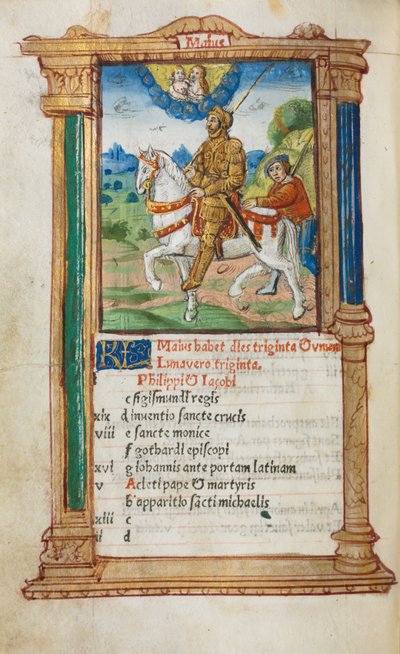 Maius
KL Maius habet dies triginta & unum
Luna vero triginta.
g Philippi & Jacobi
c sigismundi regis
xix d inventio sancte crucis
viii e sancte monice
f gothardi episcopi
xvi g iohannis ante portam latinam
v A cleti pape & martyris
b apparitio sācti michaelis
xiii c
ii d